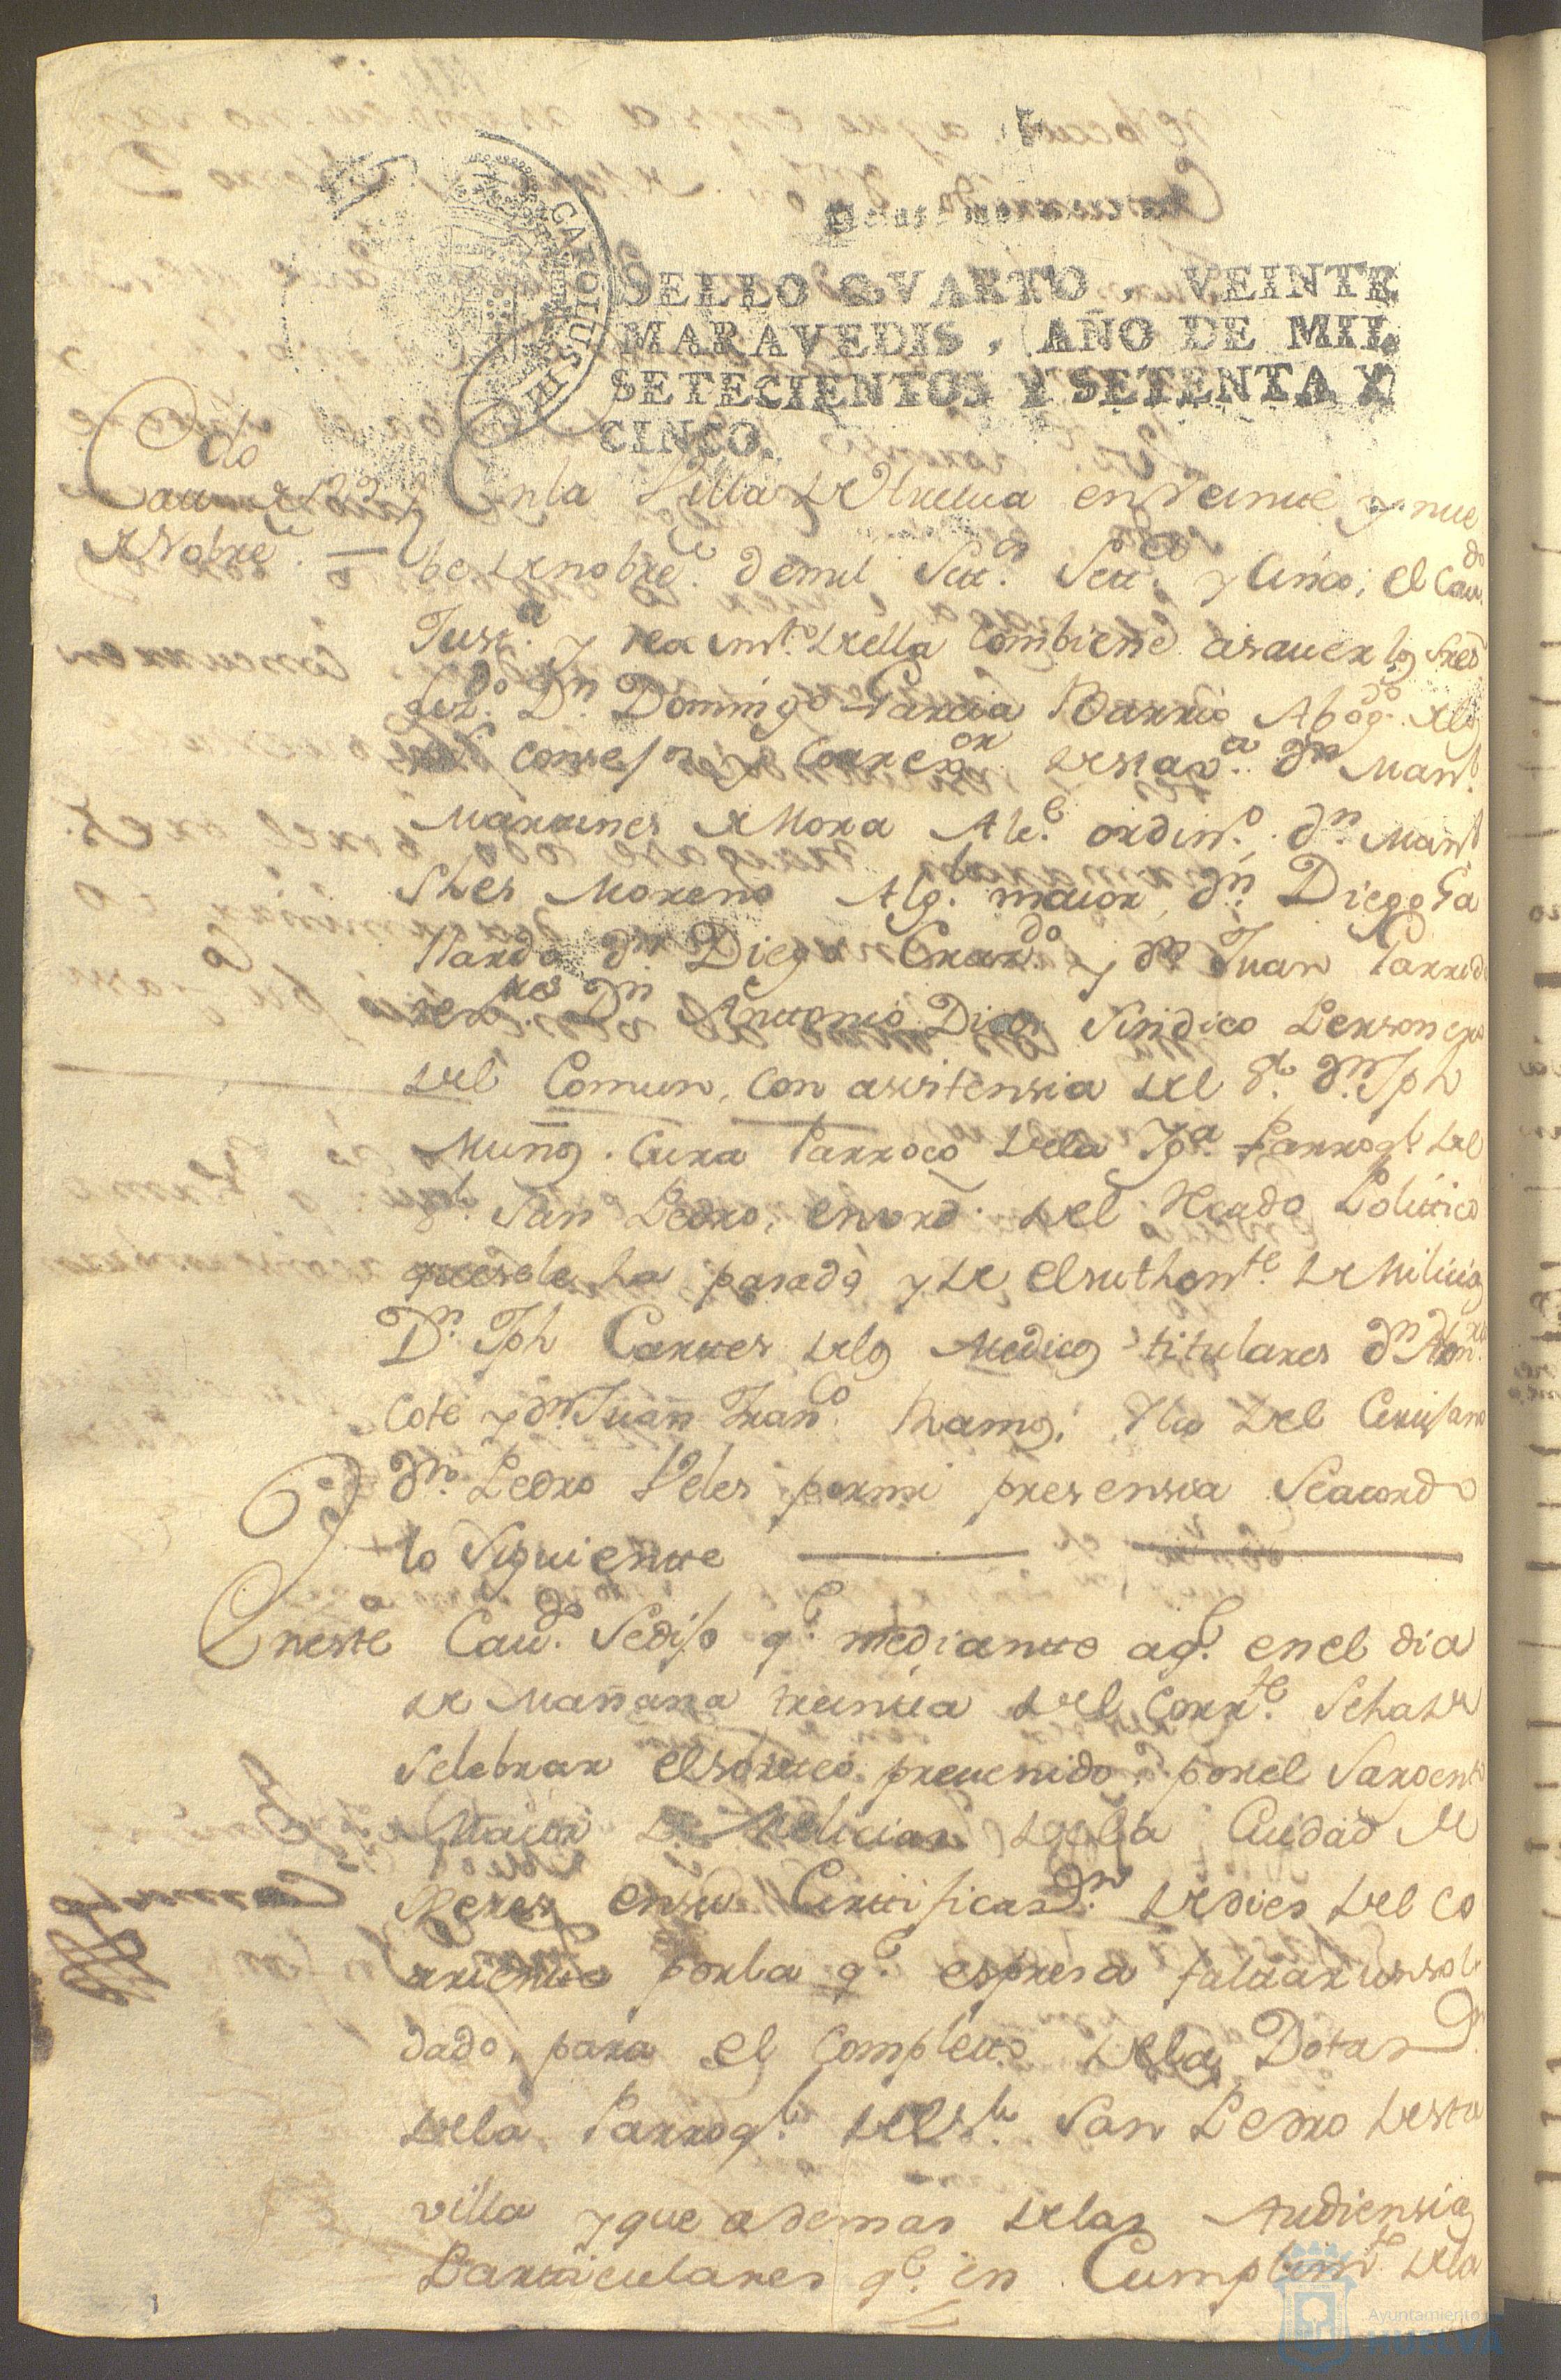 CAROLUS III
SELLO QVARTO, VEINTE
MARAVEDIS, AÑO DE MIL
SETECIENTOS Y SETENTA Y
CINCO.
Cau.do de 29
de Nobre.
En la Villa de Huelua en Veinte y nue
be de nobre. de mil Sett.s Sett.a y Cinco; el Cau.do
Just.a y rex.im.to de ella Combiene asauer los Sres
Liz.do Dn. Domingo Garcia Barrio Abog.do de los
R.s consejos y Correg.or de esta v.a dn Man.l
Martines de Mora Alc.e ordin.o dn. Man.l
Shes Moreno Alg.l maior, dn. Diego Ga
llardo dn. Diego Gerar.do y dn Juan Garrido
rex.res Dn Anttonio Dias Sindico Personero
del Comun, con asistensia del S.r dn. Jph
Muños. Cura Parroco de la Ygl.a Parroq.l del
S.r San Pedro, en vord. del Recado Politico
que se le ha pasado y de el suthente. de Milicias
Dn. Jph Carrer de los Medicos titulares dn
Cote y dn Juan Fran.co Ramos; Ylio del Cirujano
dn. Pedro Veles por mi presensia Se acordo
lo Siguiente
En este Cau.do Se dijo q.e mediante a q.e en el dia
de Mañana treinta del Corr.te Se ha de
Selebrar el sorteo preuenido por el Sargento
Maior de Milicias de la Ciudad de
Xeres en su Certificaz.on de dies del co
rriente por la q.e espresa faltar un sol
dado, para el Completo de la Dotaz.on
de la Parroq.l del S.r San Pedro de esta
villa y que ademas de las Audiensias
Particulares q.e en Cumplim.to de la
Ayuntamiento
HUELVA